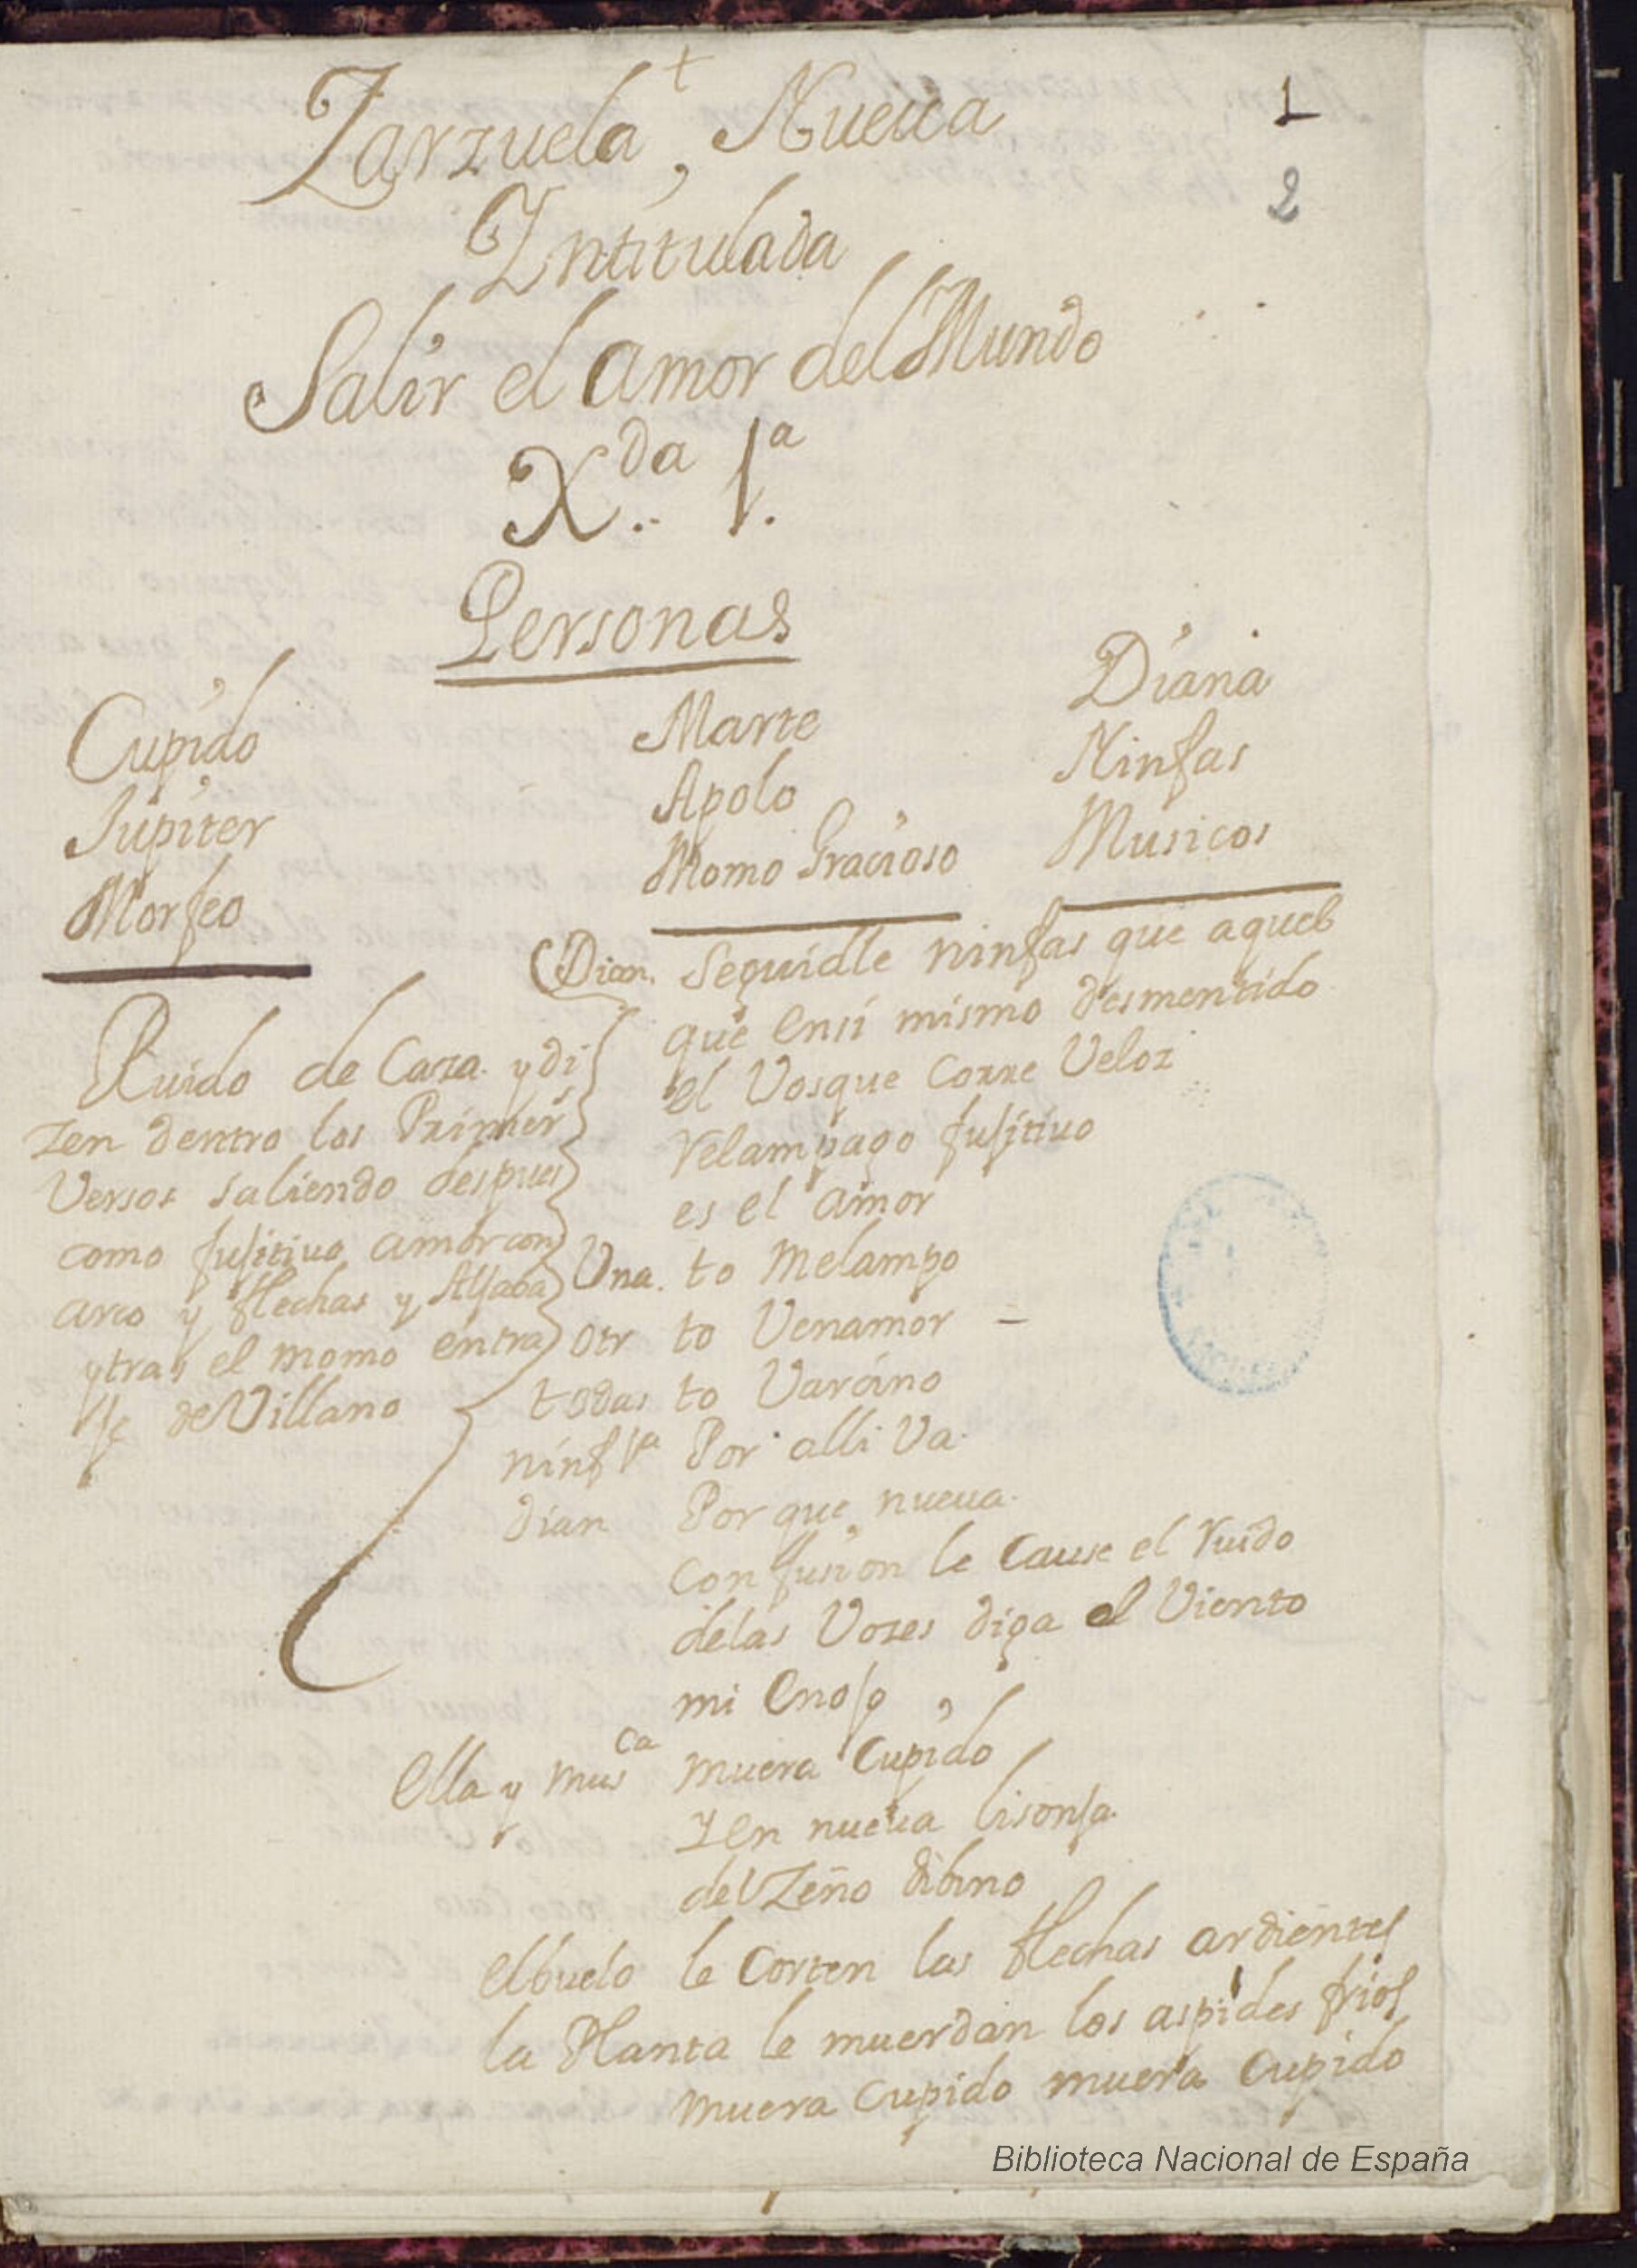 +
Zarzuela, Nueua
1
2
Yntitulada
Salir el amor del Mundo
X.da 1.a
Personas
Cupido
Jupiter
Morfeo
Marte
Apolo
Momo Gracioso
Diana
Ninfas
Musicos
Ruido de Caza. y di
zen dentro los Primer
Versos saliendo despues
como fujitiuo amor con
arco y flechas y Aljaba
y tras el momo en tra
je de Villano
Dian. Seguidle ninfas que aquel
que ensi mismo desmentido
el Vosque Corre Veloz
relampago fujitiuo
es el amor
Vna. to Melampo
otr to Venamor –
todas to Varcino
ninf 1a Por alli Va.
dian Por que nueua.
confusion le Cause el ruido
delas Vozes diga el Viento
mi Enojo
Ella y musca muera Cupido
Y en nueua lisonja.
del Zeño dibino
el buelo le Corten las flechas ardientes
la Planta le muerdan los aspides frios
muera Cupido muera Cupido
Biblioteca Nacional de España